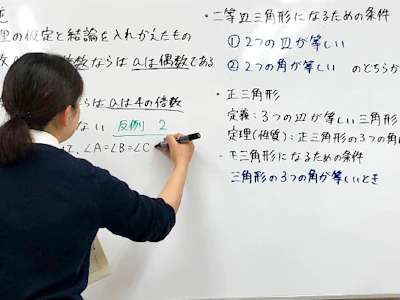 逆
理の仮定と結論を入れかえたもの
倍数ならば aは偶数である
らば aは4の倍数
ない 反例 2
て、∠A=∠B=∠C
・二等辺三角形になるための条件
① 2つの辺が等しい
② 2つの角が等しい のどちらか
・正三角形
定義:3つの辺が等しい三角形
定理(性質):正三角形の3つの角
・正三角形になるための条件
三角形の3つの角が等しいとき